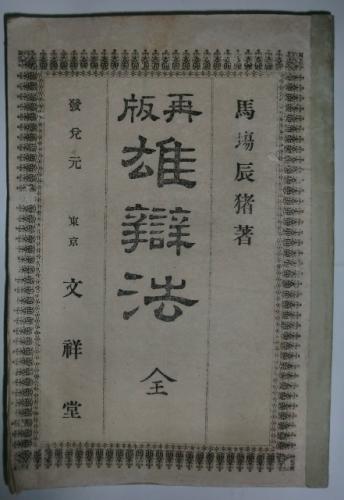 馬塲辰猪著
再版
雄辯法
全
發兌元 東京 文祥堂